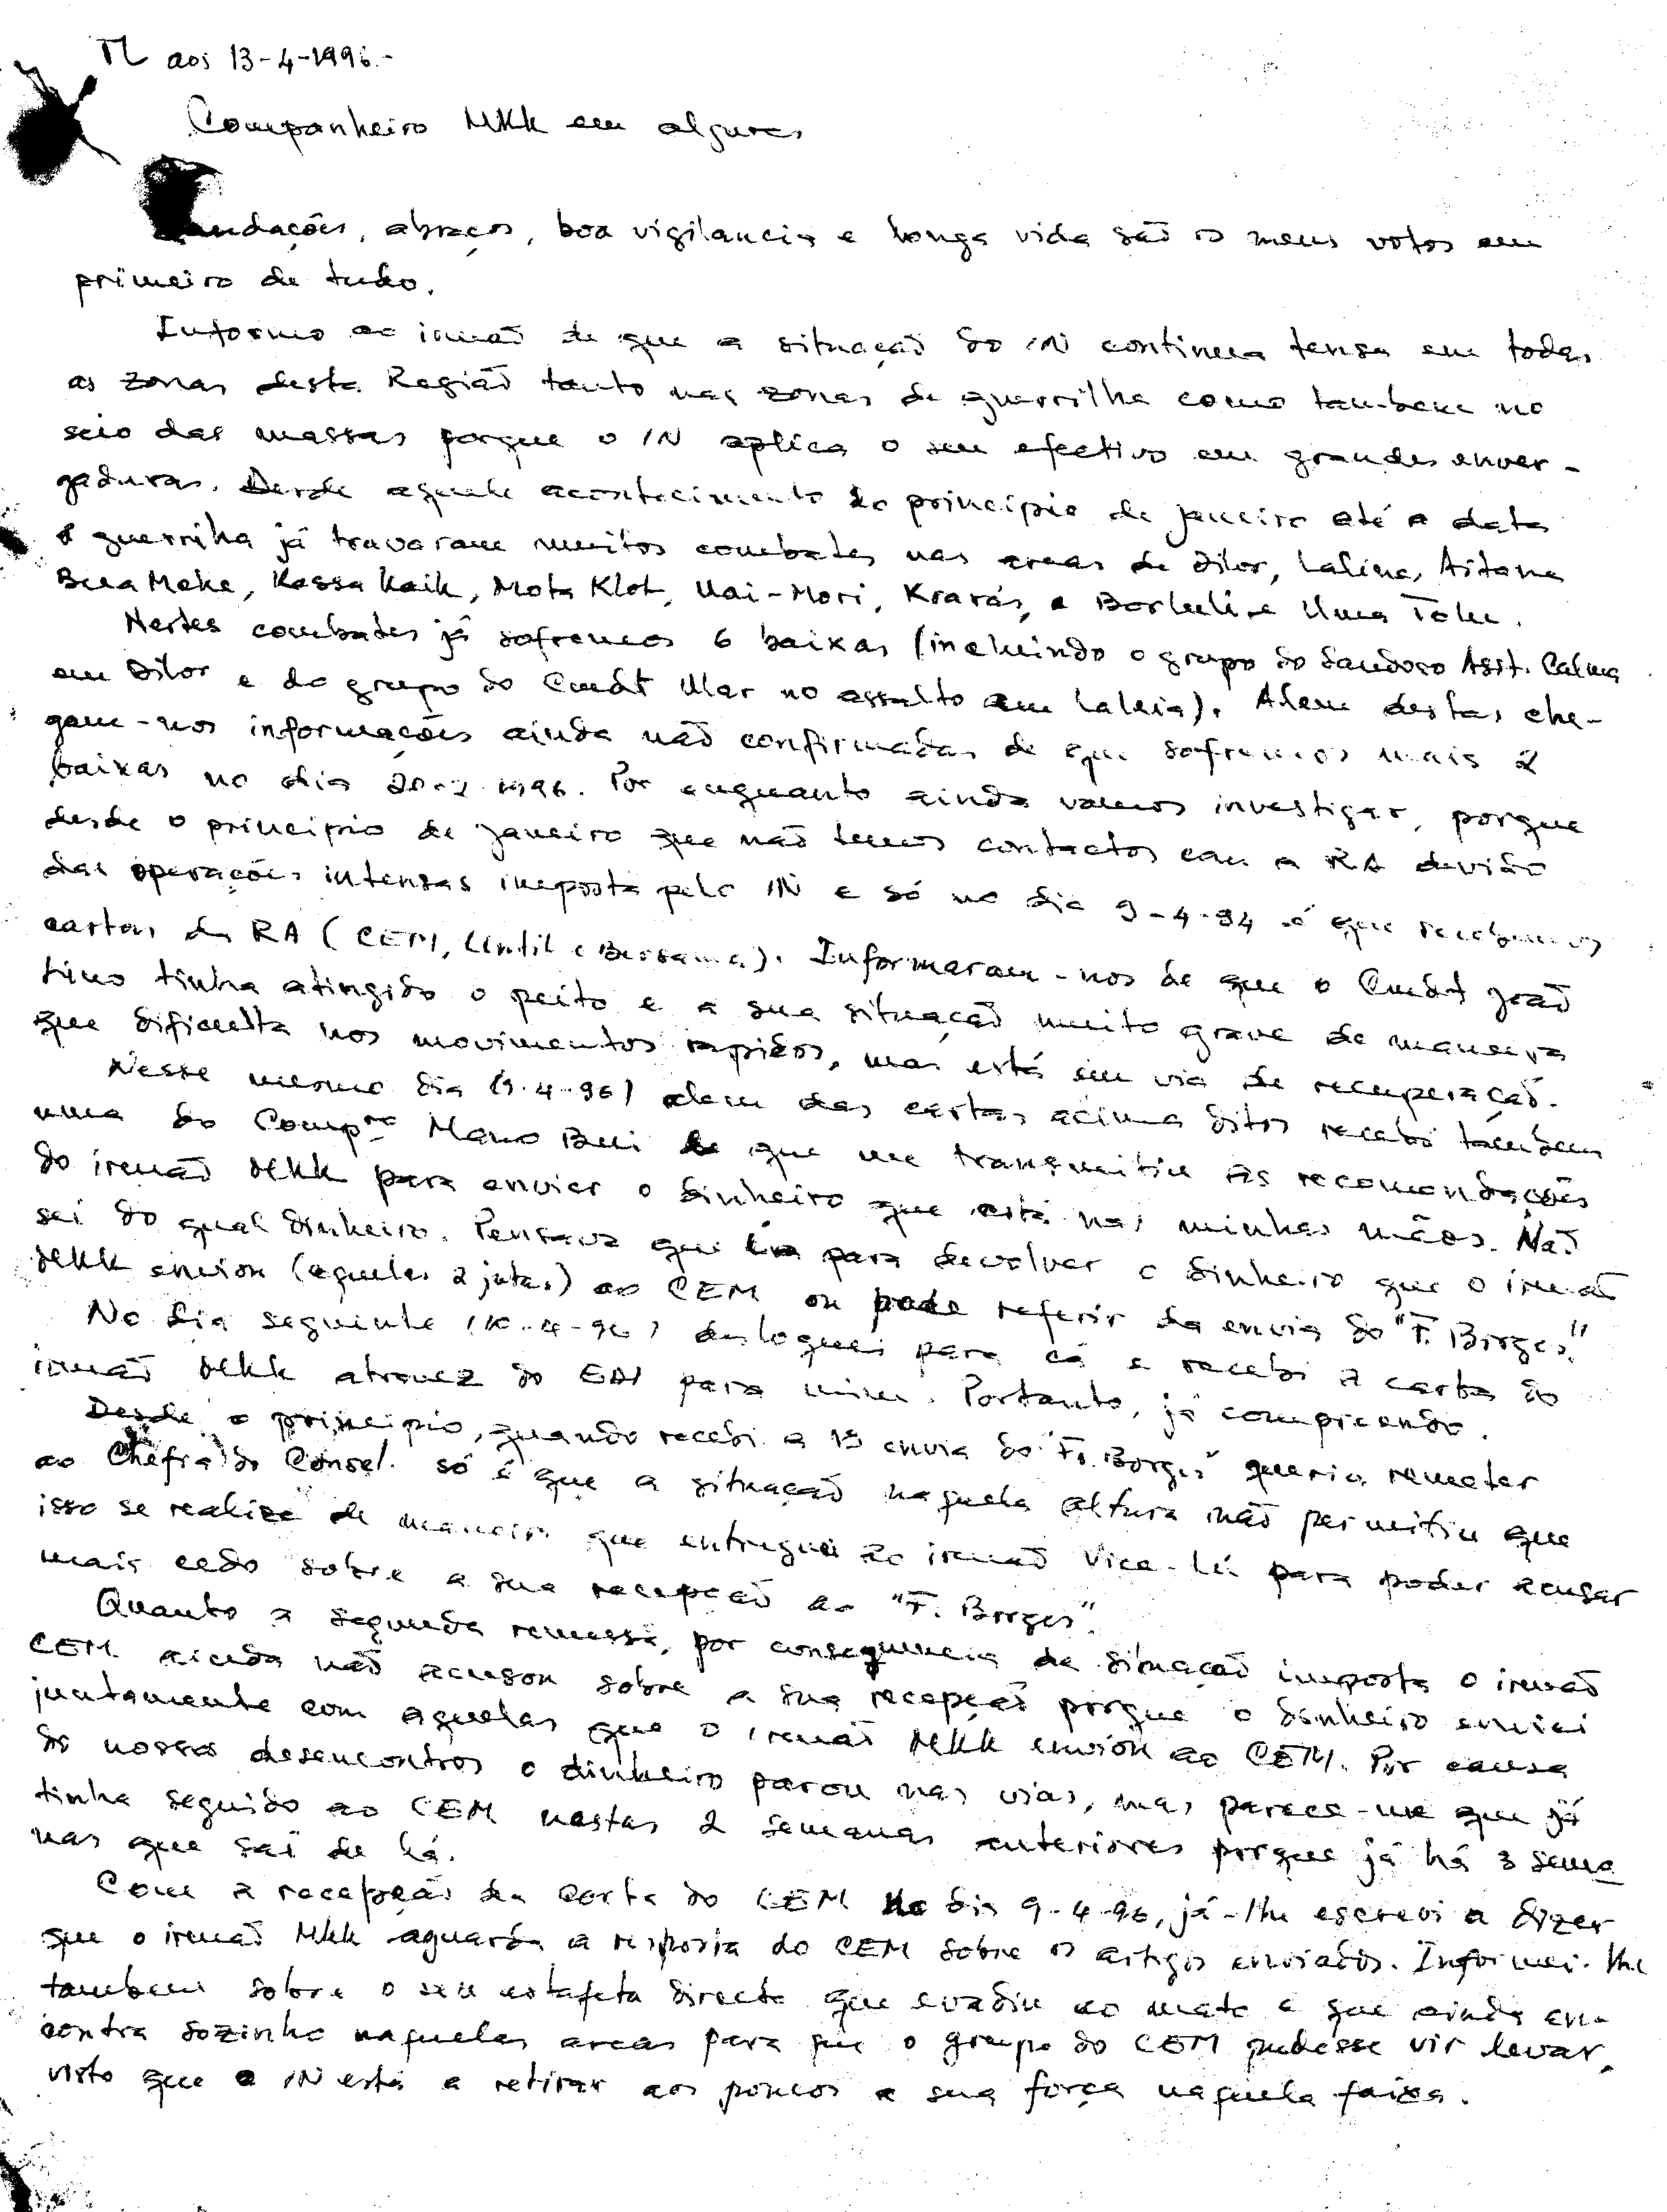 TL aos 13-4-1996.-
Companheiro MKK em algures
Saudações, abraços, boa vigilancia e longa vida são os meus votos em
primeiro de tudo.
Informo ao irmão de que a situação do IN continua tensa em todas
as zonas desta Região tanto nas zonas de guerrilha como tambem no
seio das massas porque o IN aplica o seu efectivo em grandes enver-
gaduras. Desde aquele acontecimento do principio de janeiro até a data
a guerrilha já travaram muitos combates nas areas de Dilor, Laline, Aitana
Bua Meke, Kassa Kaik, Mota Klot, Uai-Mori, Krarás, e Borluli e Uma Tolu.
Nestes combates já sofremos 6 baixas (incluindo o grupo do saudoso Asst. Calma
em Dilor e do grupo do Cmdt Ular no assalto em Laleia). Alem destas che-
gam-nos informações ainda não confirmadas de que sofremos mais 2
baixas no dia 20-2-1996. Por enquanto ainda vamos investigar, porque
desde o principio de janeiro que não temos contactos com a RA devido
das operações intensas imposta pelo IN e só no dia 9-4-94 é que recebemos
cartas da RA (CEM, Lintil e Bersama). Informaram-nos de que o Cmdt João
tino tinha atingido o peito e a sua situação muito grave de maneira
que dificulta nos movimentos rapidos, mas está em via de recuperação.
Nesse mesmo dia (9-4-96) alem das cartas acima ditos recebi tambem
uma do Compro Mano Bui de que me transmitiu as recomendações
do irmão MKK para enviar o dinheiro que está nas minhas mãos. Não
sei do qual dinheiro. Pensava que era para devolver o dinheiro que o irmão
MKK enviou (aqueles 2 jutas) ao CEM ou pode referir da envia do "F. Borges"
No dia seguinte (10-4-96) desloquei para cá e recebi a carta do
irmão MKK atravez do EAI para mim. Portanto, já compreendo.
Desde o principio, quando recebi a 1ª envia do "F. Borges" queria remeter
ao Chefia do Consel. só é que a situação naquela altura não permitiu que
isso se realize de maneira que entreguei ao irmão Vice-Lú para poder acusar
mais cedo sobre a sua recepção ao "F. Borges".
Quanto a segunda remessa, por consequencia da situação imposta o irmão
CEM ainda não acusou sobre a sua recepção porque o dinheiro enviei
juntamente com aquelas que o irmão MKK enviou ao CEM. Por causa
do nosso desencontros o dinheiro parou nas vias, mas parece-me que já
tinha seguido ao CEM nestas 2 semanas anteriores porque já há 3 sema
nas que saí de lá.
Com a recepção da carta do CEM no dia 9-4-96, já-lhe escrevi a dizer
que o irmão MKK aguarda a resposta do CEM sobre os artigos enviados. Informei-lhe
tambem sobre o seu estafeta directo que evadiu ao mato e que ainda en-
contra sozinho naquelas areas para que o grupo do CEM pudesse vir levar,
visto que o IN está a retirar aos poucos a sua força naquela faixa.